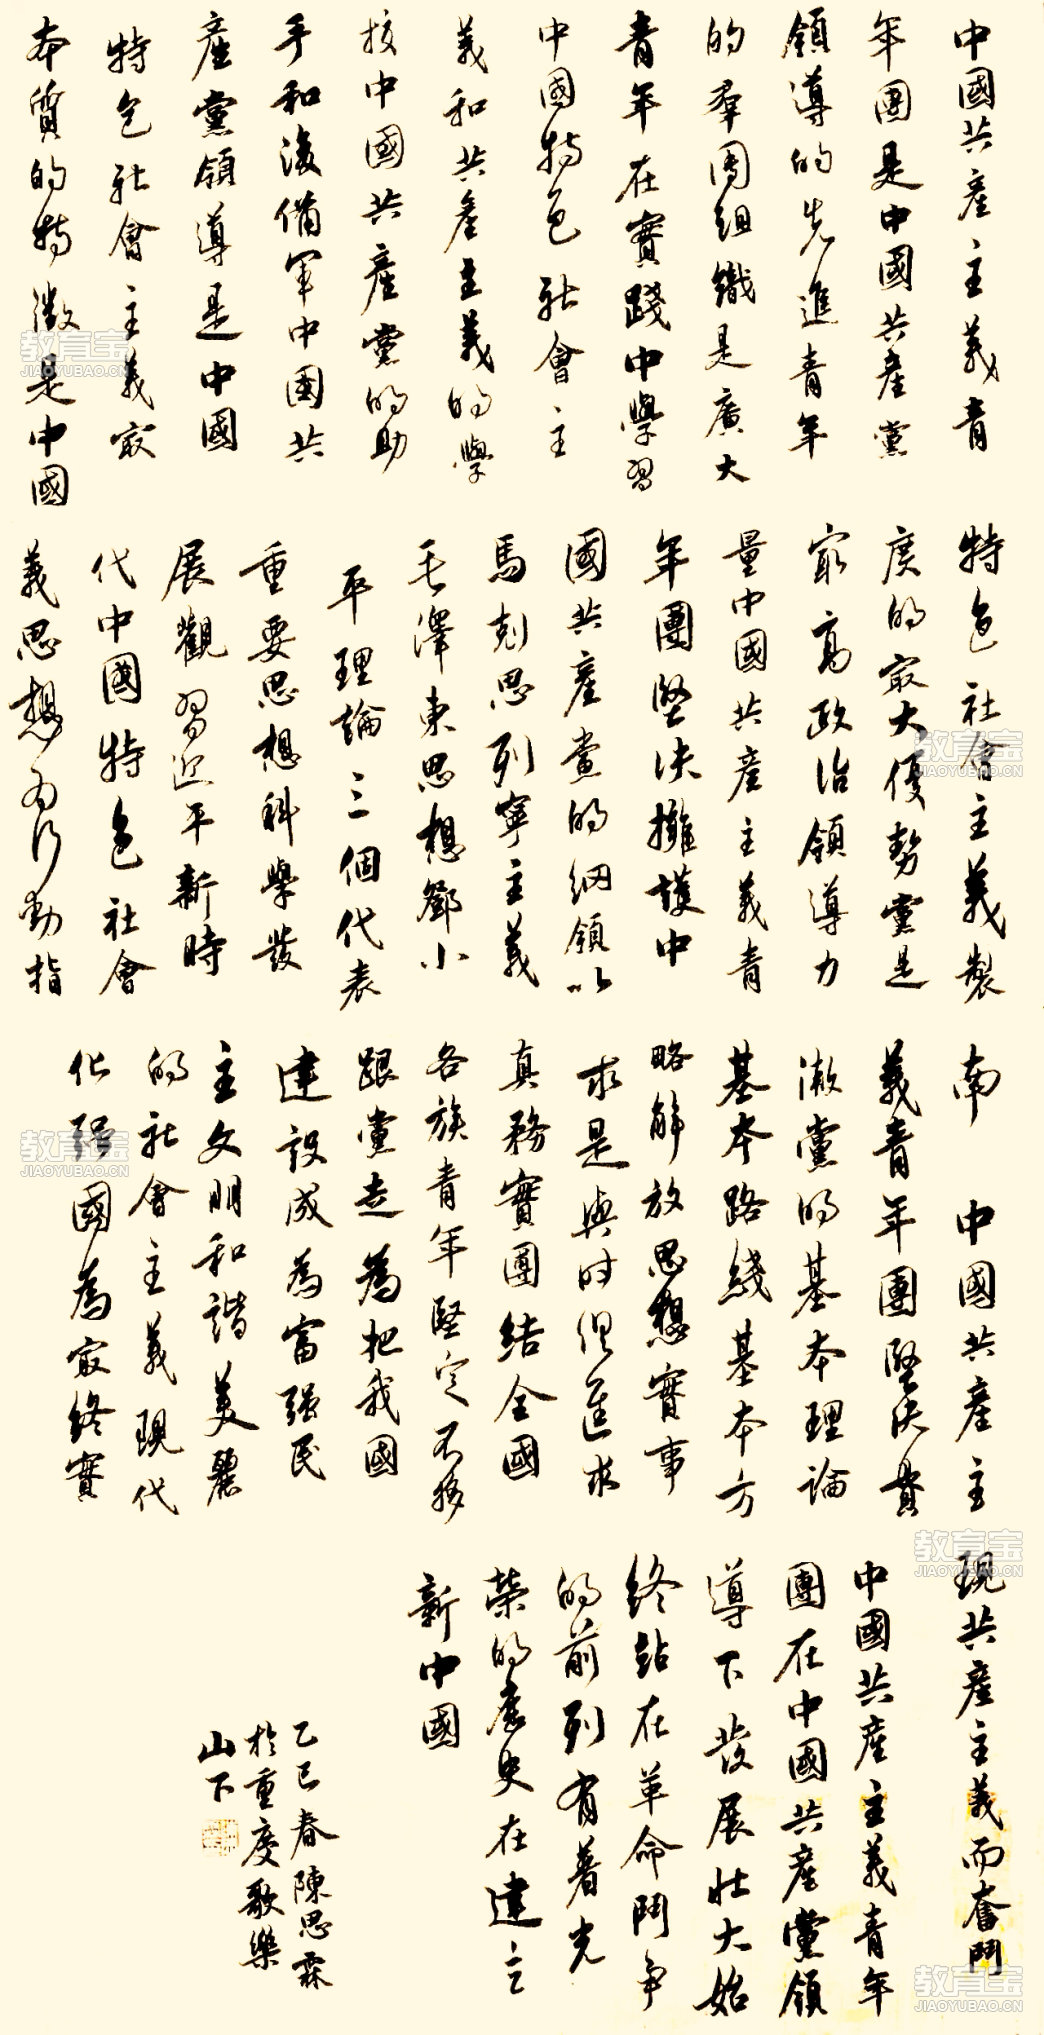 中國共產主義青
年團是中國共產黨
領導的先進青年
的羣團組織是廣大
青年在實踐中學習
中國特色社會主
義和共產主義的學
校中國共產黨的助
手和後備軍中國共
產黨領導是中國
特色社會主義最
本質的特徵是中國
特色社會主義製
度的最大優勢黨是
最高政治領導力
量中國共產主義青
年團堅決擁護中
國共產黨的綱領以
馬克思列寧主義
毛澤東思想鄧小
平理論三個代表
重要思想科學發
展觀習近平新時
代中國特色社會
義思想為行動指
南 中國共產主
義青年團堅決貫
澈黨的基本理論
基本路綫基本方
略解放思想實事
求是與时俱進求
真務實團結全國
各族青年堅定不移
跟黨走為把我國
建設成為富强民
主文明和諧美麗
的社會主義現代
化强國為最終實
現共產主義而奮鬥
中國共產主義青年
團在中國共產黨領
導下發展壯大始
終站在革命鬥爭
的前列有著光
榮的歷史在建立
新中國
乙巳春陳思霖
於重慶歌樂
山下
教育宝
JIAOYUBAO.CN
教育宝
JIAOYUBAO.CN
教育宝
JIAOYUBAO.CN
教育宝
JIAOYUBAO.CN
教育宝
JIAOYUBAO.CN